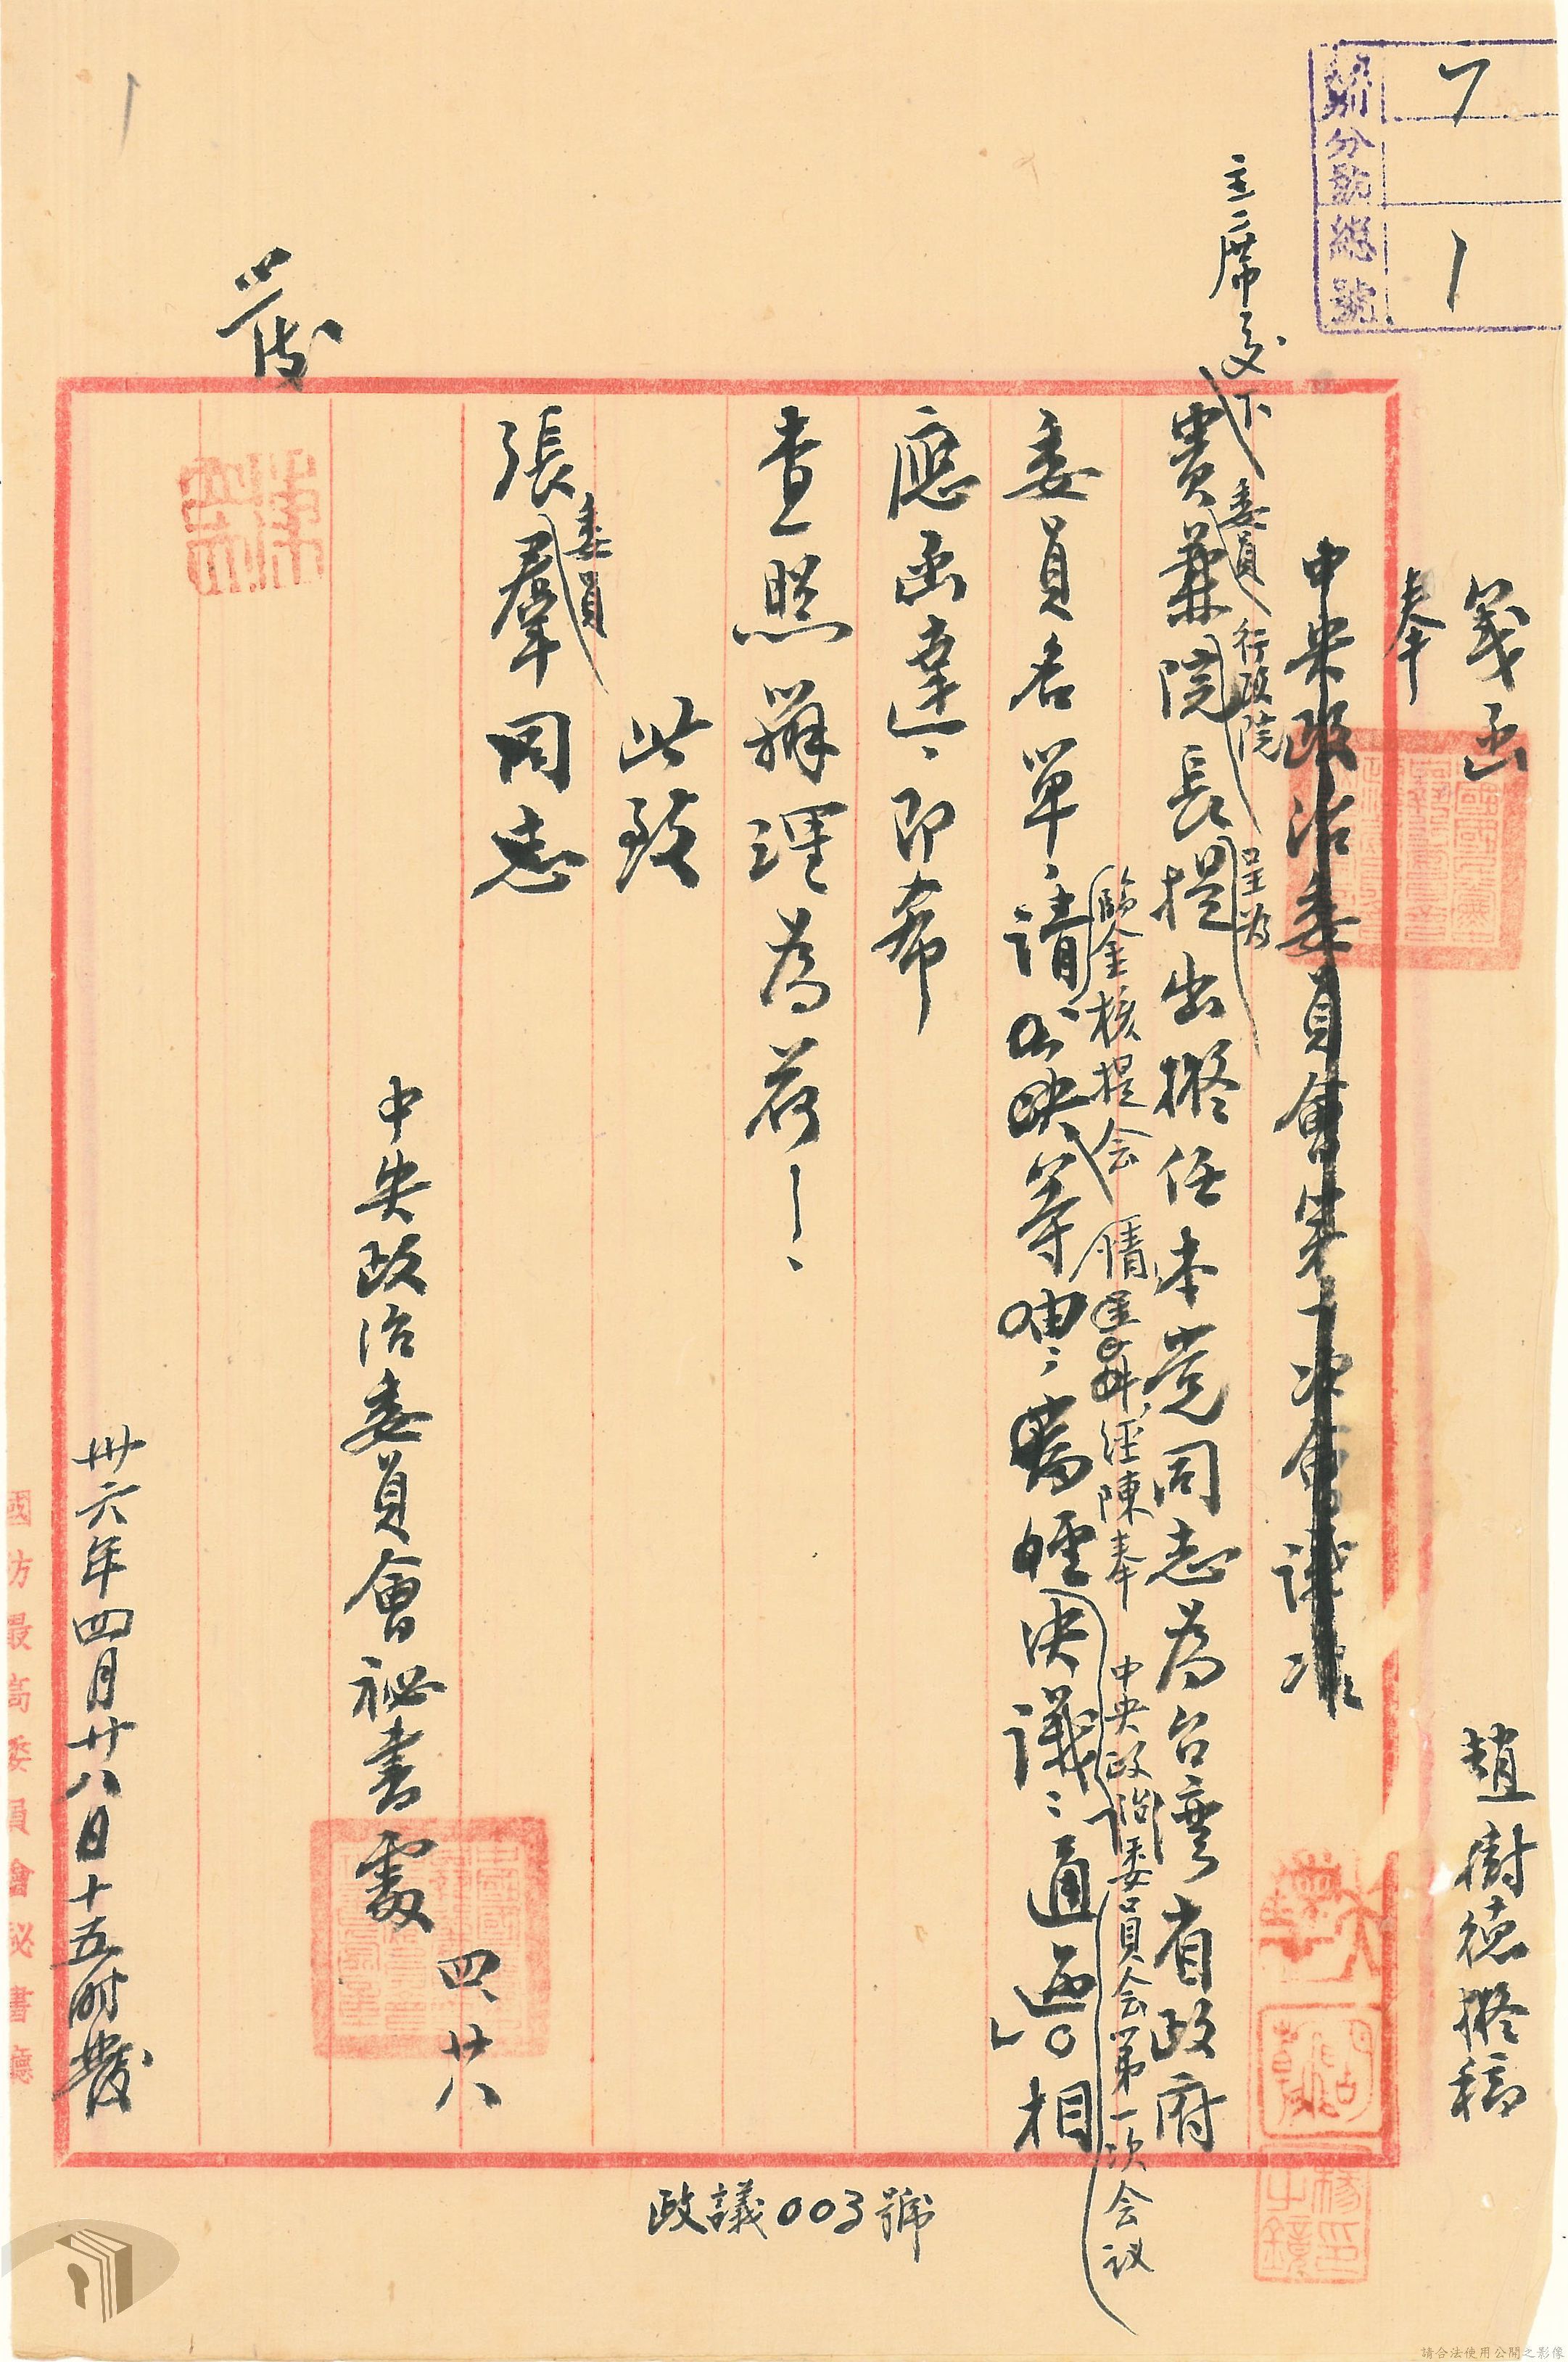 類別
分號
總號
7
1
箋函
趙樹德擬稿
奉
中央政治委員會第一次會議准
主席交下
委員
行政院
呈為
貴兼院長提出擬任本党同志為台灣省政府
臨全核提会
情
經陳奉
中央政治委員会第一次会议
委員名單，請
等由，
經決議：通過。相
應函達，即希
查照辦理為荷！
此致
委員
張羣同志
中央政治委員會祕書處
四、廿八
卅六年四月廿八日十五時發
政議003號
國防最高委員會祕書廳
請合法使用公開之影像